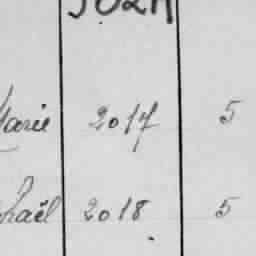 arie 2017 5
haël 2018 5